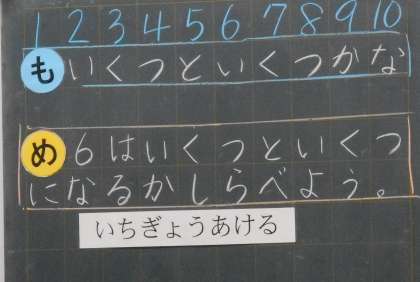 1 2 3 4 5 6 7 8 9 10
も いくつといくつかな
め 6はいくつといくつ
になるかしらべよう。
いちぎょうあける